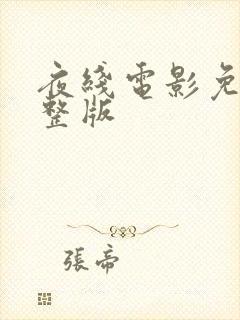 夜綫電影免
整版
張帝